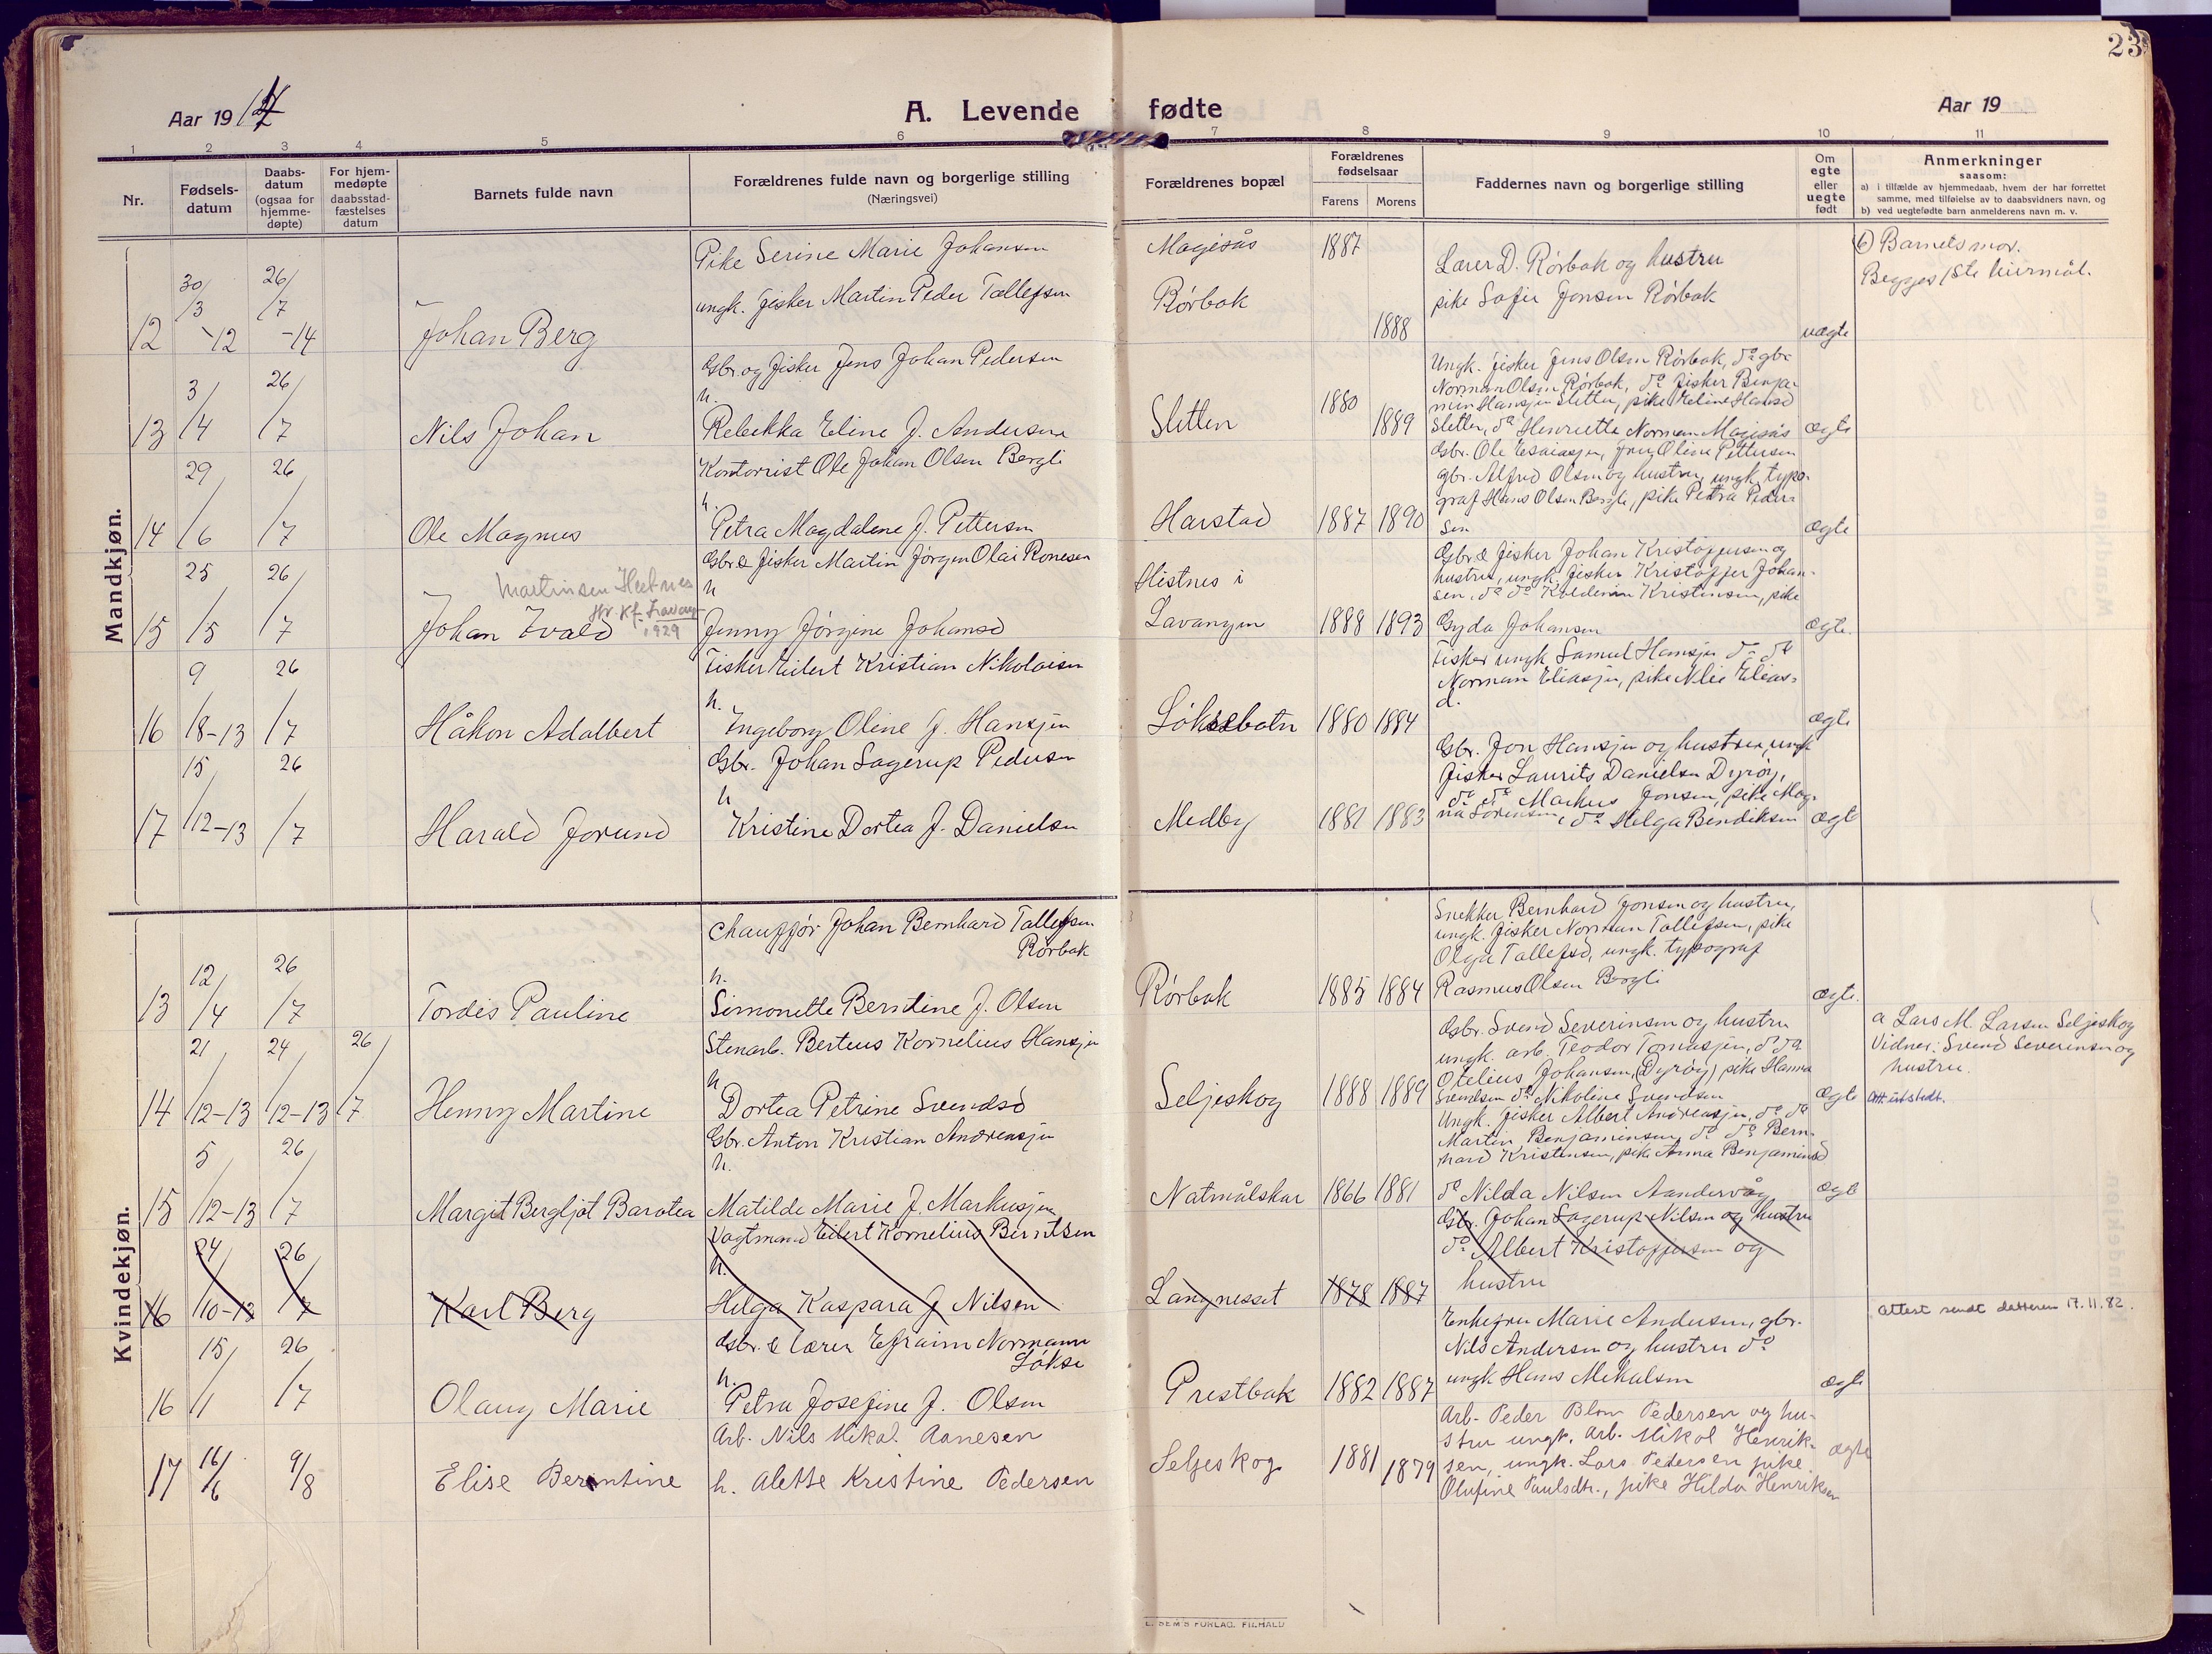 23
Aar 1914
A. Levende fødte
Aar 19
1 2 3 4 5 6 7 8 9 10 11
Nr.
Fødselsdatum
Daabsdatum (ogsaa for hjemmedøpte)
For hjemmedøpte daabsstadfæstelses datum
Barnets fulde navn
Forældrenes fulde navn og borgerlige stilling
(Næringsvei)
Forældrenes bopæl
Forældrenes fødselsaar
Farens Morens
Faddernes navn og borgerlige stilling
Om egte eller uegte født
Anmerkninger
saasom:
a) i tilfælde av hjemmedaab, hvem der har forrettet samme, med tilføielse av to daabsvidners navn, og
b) ved uegtefødte barn anmelderens navn m. v.
Mandkjøn.
12 30/3-12 26/7-14 Johan Berg
Pike Serine Marie Johansen
ungk. fisker Martin Peder Tollefsen
Magesås
Rörbak
1887
1888
Lærer D. Rörbak og hustru
pike Sofie Jonsen Rörbak
uægte
b) Barnets mor.
Begges 1ste leiermål.
13 3/4 26/7 Nils Johan
Gbr. og fisker Jens Johan Pedersen
h.
Rebekka Eline J. Andersen
Sletten
1880 1889
Ungk. fisker Jens Olsen Rörbak, do gbr
Norman Olsen Rörbak, do fisker Benja-
min Hansen Sletten, pike Eline Hansd
Sletten, do Henriette Norman Magesås
ægte
14 29/6 26/7 Ole Magnus
Kontorrist Ole Johan Olsen Bergli
h.
Petra Magdalene J. Pettersen
Harstad
1887 1890
Gbr. Ole Esaiasen, fru Oline Pettersen
gbr. Alfred Olsen og hustru, ungk. typo-
graf Hans Olsen Bergli, pike Petra Peder-
sen
ægte
15 25/5 26/7 Johan Evald
Martinsen Hestnes
1929
Gbr. & fisker Martin Jørgen Olai Ronesen
h
Jenny Jørgine Johansd
Hestnes i
Lavangen
1888 1893
Gbr. & fisker Johan Kristoffersen og
hustru, ungk. fisker Kristoffer Johan-
sen, do do Kristensen, pike
Gyda Johansen
ægte.
16 9/8-13 26/7 Håkon Adalbert
Fisker Eilert Kristian Nikolaisen
h.
Ingeborg Oline J. Hansen
Løksebotn
1880 1884
Fisker ungk. Samuel Hansen do do
Norman Eliasen, pike Elias-
d.
ægte
17 15/12-13 26/7 Harald Jorund
Gbr. Johan Sagerup Pedersen
h
Kristine Dortea J. Danielsen
Medby
1881 1883
Gbr. Jon Hansen og hustru, ungk
fisker Laurits Danielsen Dyrøy,
do do Markus Jonsen, pike Mag-
na Sørensen, do Helga Bendiksen
ægte
Kvindekjøn.
13 12/4 26/7 Tordis Pauline
Chauffør Johan Bernhard Tollefsen
Rörbak
h.
Simonette Berntine J. Olsen
Rörbak
1885 1884
Snekker Bernhard Jonsen og hustru,
ungk. fisker Norman Tollefsen, pike
Olga Tollefsd, ungk. typograf
Rasmus Olsen Bergli
ægte.
14 21/12-13 24/12-13 26/7 Henny Martine
Stenarb. Berteus Kornelius Hansen
h
Dortea Petrine Svendsd
Seljeskog
1888 1889
Gbr. Svend Severinsen og hustru
ungk. arb. Teodor Tomasen, do do
Otelius Johansen, (Dyrøy) pike Hanna
Svendsen do Nikoline Svendsen
ægte
a Lars M. Larsen Seljeskog
Vidner: Svend Severinsen og
hustru.
Att. utstedt.
15 5/12-13 26/7 Margit Bergljot Barotea
Gbr. Anton Kristian Andreasen
h.
Matilde Marie J. Markusen
Natmålskar
1866 1881
Ungk. fisker Albert Andreasen, do do
Martin Benjaminsen, do do Bern-
hard Kristensen, pike Anna Benjaminsd
do Nilda Nilsen Aandervåg
ægte
16 24/10-13 26/7 Karl Berg
Vagtmand Eilert Kornelius Berntsen
h.
Helga Kaspara J Nilsen
Langnesset
1878 1887
Gbr. Johan Sagerup Nilsen og hustru
do Albert Kristoffersen og
hustru
16 15/1 26/7 Olaug Marie
Gbr. & lærer Efraim Normann
Løkse
h.
Petra Josefine J. Olsen
Prestbak
1882 1887
Enkefru Marie Andersen, gbr.
Nils Andersen og hustru do
ungk Hans Mikalsen
ægte
Attest sendt datteren 17.11.82.
17 16/6 9/8 Elise Berentine
Arb. Nils Mikal Aanesen
h. Alette Kristine Pedersen
Seljeskog
1881 1879
Arb. Peder Blom Pedersen og hu-
stru ungk. arb. Mikal Henrik-
sen, ungk. Lars Pedersen pike
Olufine Paulsdtr., pike Hilda Henriksen
ægte
E. SEM'S FORLAG. FILHALD